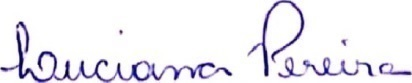 Luciana Pereira